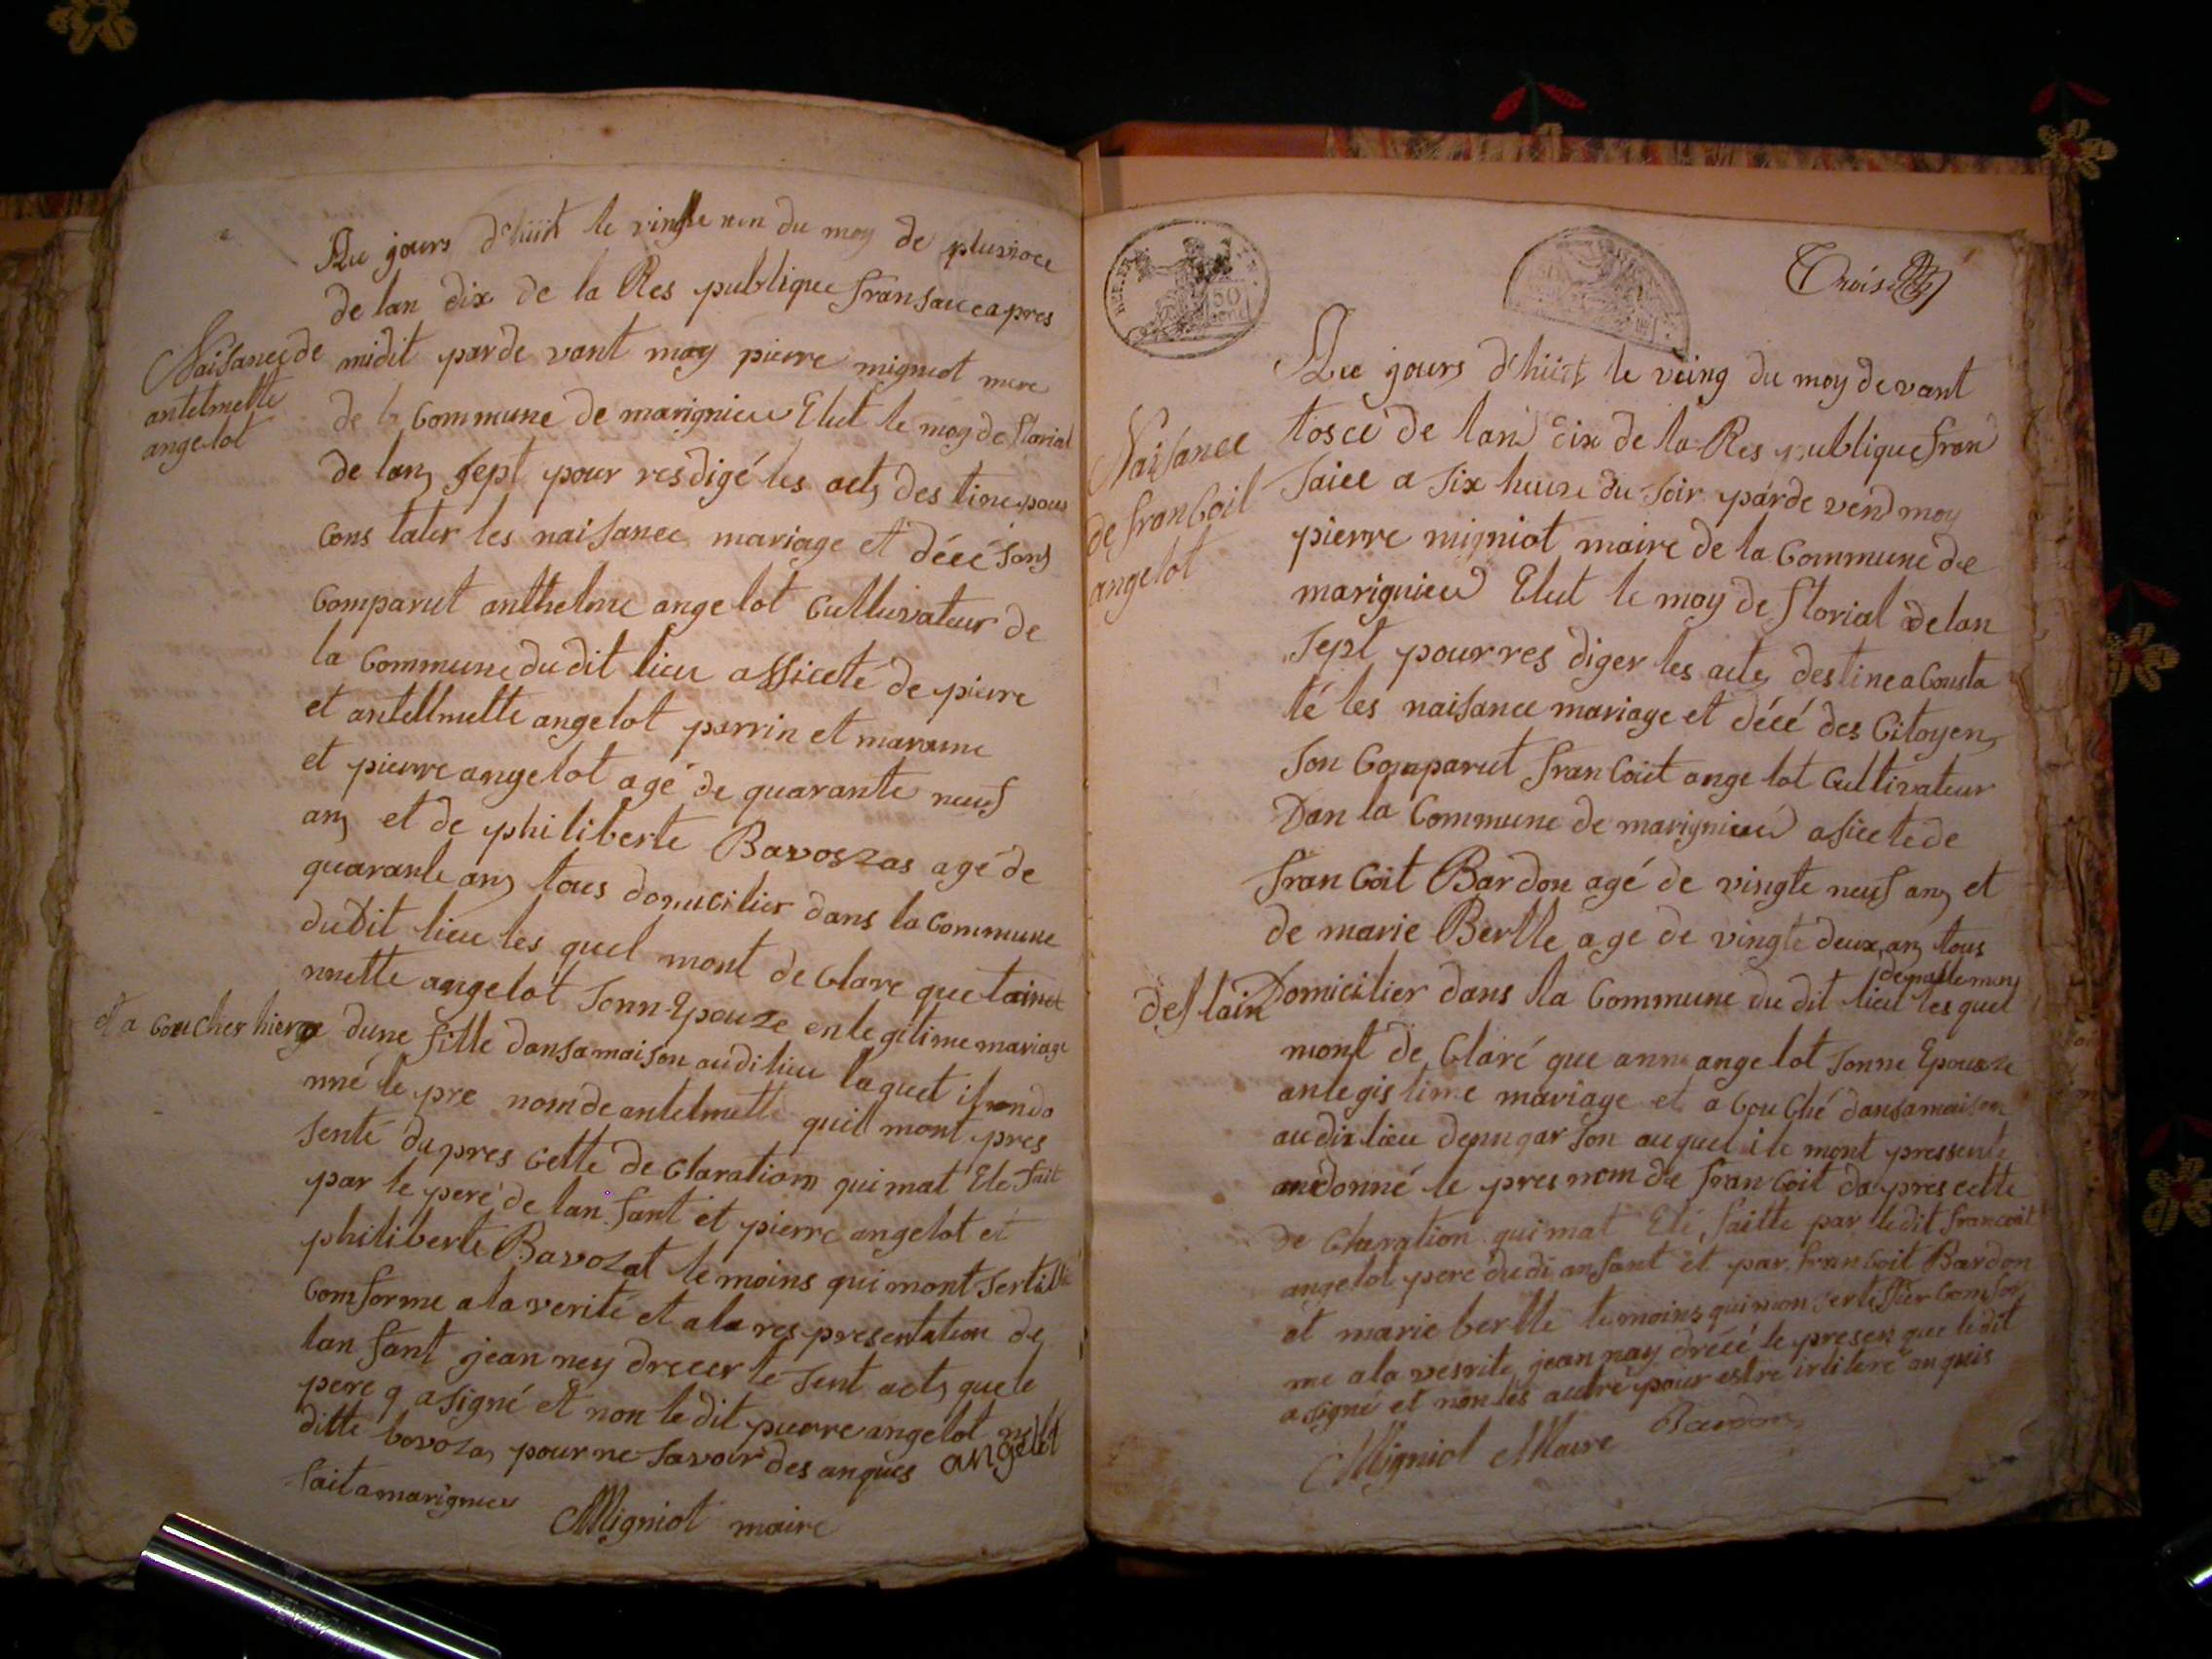 Au jours d'huit le vingte un du moy de pluvioce
de lan dix de la Res publique fransaice apres
Naisance de
antelmette
angelot
midit par de vant moy pierre migniot mere
de la Commune de marignieu Elut le moy de florial
de lan sept pour resdigé les acts destine pour
Cons tater les naisance mariage et décé sons
Comparut anthelme angelot Cultivateur de
la Commune du dit lieu assiceté de pierre
et antellmette angelot parrin et maraine
et pierre angelot agé de quarante neuf
ans et de philiberte Bavoszas agé de
quarante ans tous domicilier dans la Commune
du Dit lieu les quel mont de Clare que
nnette angelot sonn Epouze en legitime mariage
et a Coucher hier
dune fille dansamaison audilieu laquel
nné le pre nom de antelmette quil mont pres
senté dapres Cette de Claration quimat Ete fait
par le peré de lan fant et pierre angelot et
philiberte Bavozat temoins qui mont
Comforme a la verité et ala res presentation de
lan fant jean ney drecer le sent acts quele
pere q asigné et non ledit pierre angelot
ditte bovoza pour ne savoir des anques angelot
fait a marignieu
Migniot maire
Trois
REP. FRA.
50
CENT.
Au jours d'huit le veing du moy de vant
tosce de lan dix de la Res publique fran
Naisance
de franCoit
angelot
saice a six heure du soir par de vend moy
pierre migniot maire de la Commune de
marignieu Elut le moy de florial de lan
sept pour res diger les acte destine a Consta
té les naisance mariage et décé des Citoyen
son Comparut franCoit angelot Cultivateur
Dan la Commune de marignieu asicte de
franCoit Bardon agé de vingte neuf ans et
de marie Bertte age de vingte deux ans tous
departement
Domicilier dans la Commune du dit lieu les quel
de lain
mont de Claré que anne angelot sonne Epouze
anlegis time mariage et a CouChé dansamaison
audix lieu deungarson auquel ile mont pressente
andonné le pres nom de franCoit da pres cette
de Claration quimat Eté faitte par ledit francoit
angelot pere dudi anfant et par franCoit Bardon
et marie bertte temoins quimon sertiffier Comfor
me ala vesrite jean nay dréce le presen que ledit
a signé et non les autre pour estre an quis
Migniot Maire Bardon